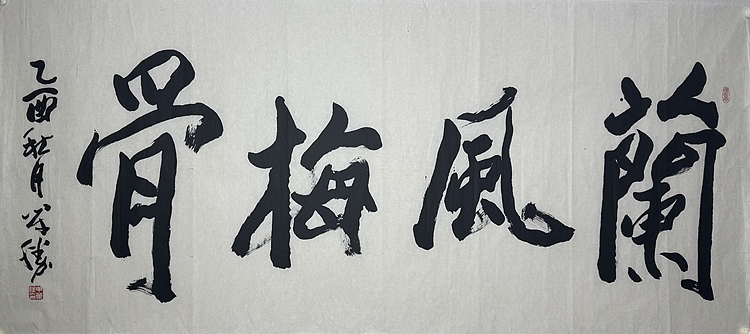 蘭風梅骨
乙酉秋月